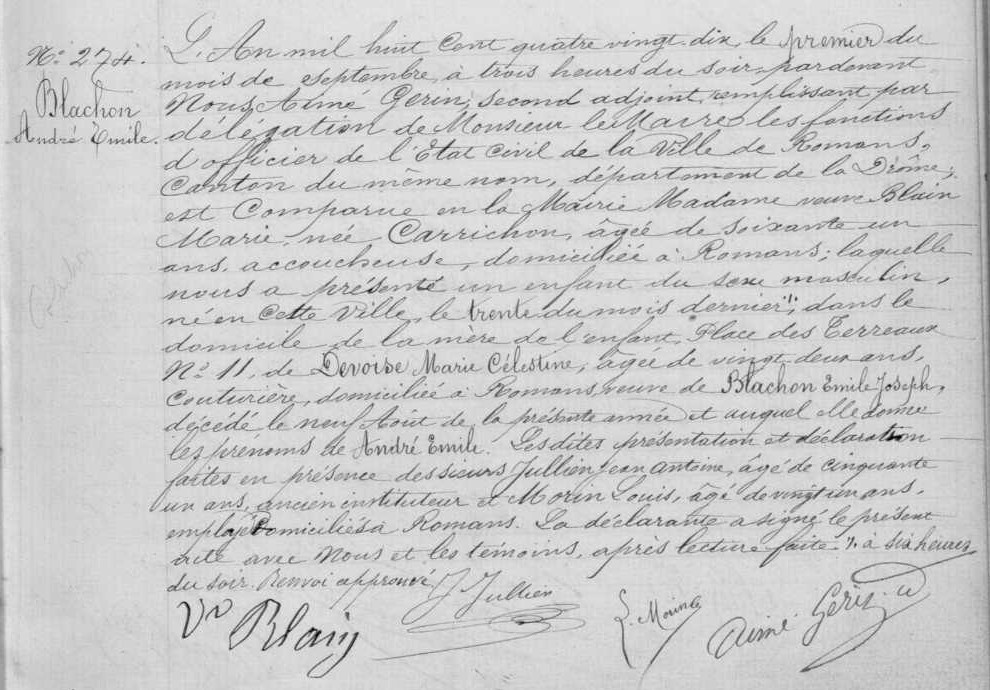 N° 274.
Blachon
André Emile.
L'An mil huit cent quatre vingt dix, le premier du
mois de septembre, à trois heures du soir, pardevant
Nous, Aimé Gerin, second adjoint, remplissant par
délégation de Monsieur le Maire les fonctions
d'officier de l'Etat civil de la Ville de Romans,
Canton du même nom, département de la Drôme;
est Comparue en la Mairie Madame veuve Blain
Marie, née Carrichon, âgée de soixante un
ans, accoucheuse, domiciliée à Romans; laquelle
nous a présenté un enfant du sexe masculin,
né en cette Ville, le trente du mois dernier ./. dans le
domicile de la mère de l'enfant, Place des Terreaux
N° 11, de Devoise Marie Célestine, âgée de vingt deux ans,
couturière, domiciliée à Romans, veuve de Blachon Emile Joseph,
décédé le neuf Août de la présente année et auquel elle donne
les prénoms de André Emile. Lesdites présentation et déclaration
faites en présence des sieurs Jullien Jean antoine, âgé de cinquante
un ans, ancien instituteur et Morin Louis, âgé de vingt un ans,
employé domiciliés à Romans. La déclarante a signé le présent
acte avec Nous et les témoins, après lecture faite. ./. à six heures
du soir. Renvoi approuvé
J Jullien
Ve Blain
L. Morin
Aimé Gerin